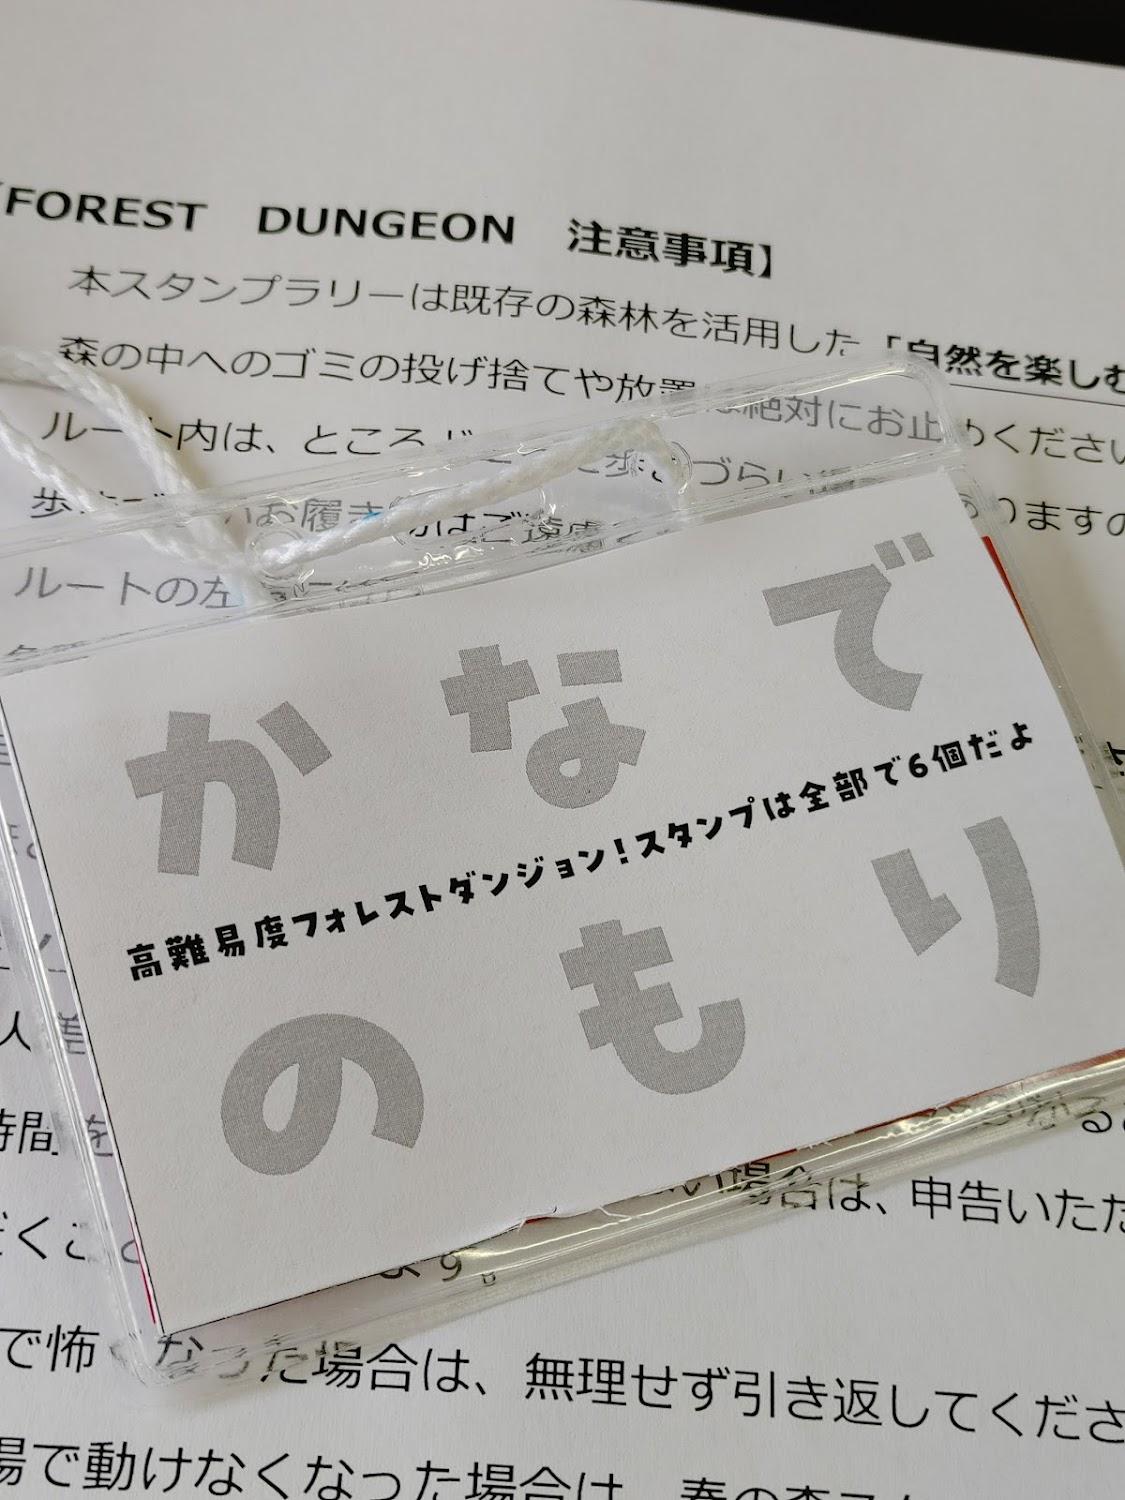 【FOREST DUNGEON 注意事項】
本スタンプラリーは既存の森林を活用した「自然を楽しむ
森の中へのゴミの投げ捨てや放置は絶対にお止めください
ルート内は、ところ
歩 づらい
お履き物はご遠慮 ありますの
ルートの左
かなで
高難易度フォレストダンジョン!スタンプは全部で6個だよ
のもり
人
時間を
場合は、申告いただ
だくこと ます。
で怖くなった場合は、無理せず引き返してくださ
場で動けなくなった場合は、春の森ス